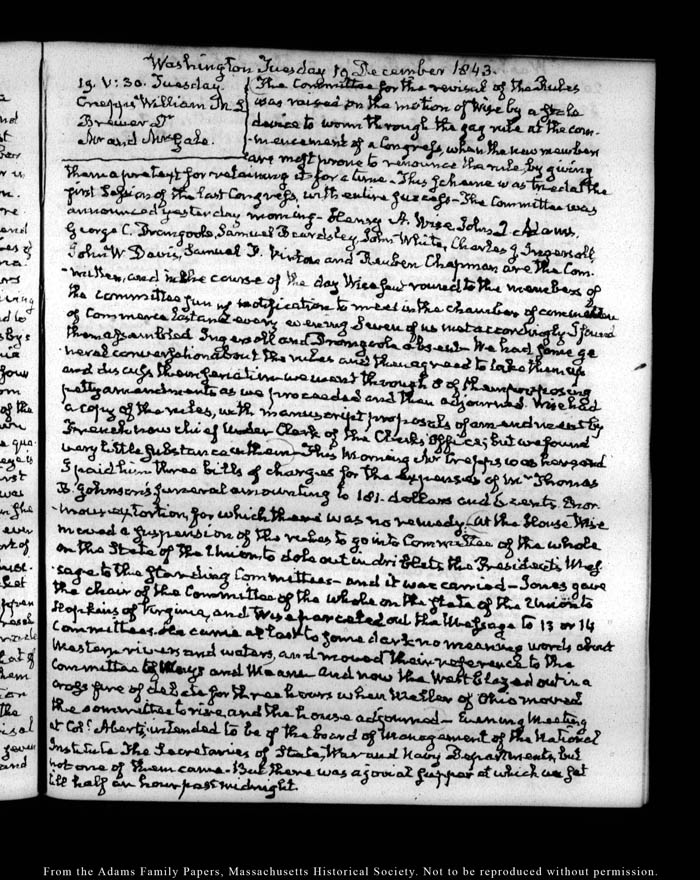 Washington Tuesday 19 December 1843.
19. V: 30. Tuesday.
Crepps William M. S.
Brewer Dr
Mr and Mrs Gale.
The Committee for the revisal of the Rules
was raised on the motion of Wise by a stale
device to worm through the gag rule at the com-
-mencement of a Congress, when the new members
are most prone to renounce the rule, by giving
them a pretext for retaining it for a time. This scheme was tried at the
first Session of the last Congress, with entire success. The Committee was
announced yesterday morning. Henry A. Wise, John Q. Adams,
George C. Dromgoole, Samuel Beardsley, John White, Charles J. Ingersoll,
John W. Davis, Samuel F. Vinton and Reuben Chapman are the Com-
-mittee, and in the course of the day Wise sent round to the members of
the committee a notification to meet in the chamber of the committee
of Commerce last evening Seven of us met accordingly I found
them assembled Ingersoll and Dromgoole absent. We had some ge-
neral conversation about the rules and then agreed to take them up
and discuss them seriatim we went through 8 of them proposing
petty amendments as we proceeded and then adjourned. Wise had
a copy of the rules, with manuscript proposals of amendment by
French now chief Under Clerk of the Clerk's Office; but we found
very little substance in them. This Morning Mr Crepps was here and
I paid him three bills of charges for the expenses of Mr Thomas
B. Johnson's funeral amounting to 181 dollars and 6 cents. Enor-
-mous extortion, for which there was no remedy. At the House Wise
moved a suspension of the rules to go into Committee of the whole
on the State of the Union to dole out in driblets the President's Mes-
-sage to the standing Committees—and it was carried—Jones gave
the chair of the Committee of the whole on the State of the Union to
Hopkins of Virginia, and Wise parcelled out the Message to 13 or 14
Committees. He came at last to some dark no meaning words about
Western rivers and waters, and moved their reference to the
Committee of Ways and Means. And now the West blazed out in a
cross fire of debate for three hours when Weller of Ohio moved
the committee to rise, and the house adjourned—Evening Meeting
at Col. Abert's, intended to be of the board of Management of the National
Institute. The Secretaries of State, War and Navy Departments, but
not one of them came. But there was a jovial supper at which we sat
till half an hour past midnight.
From the Adams Family Papers, Massachusetts Historical Society. Not to be reproduced without permission.